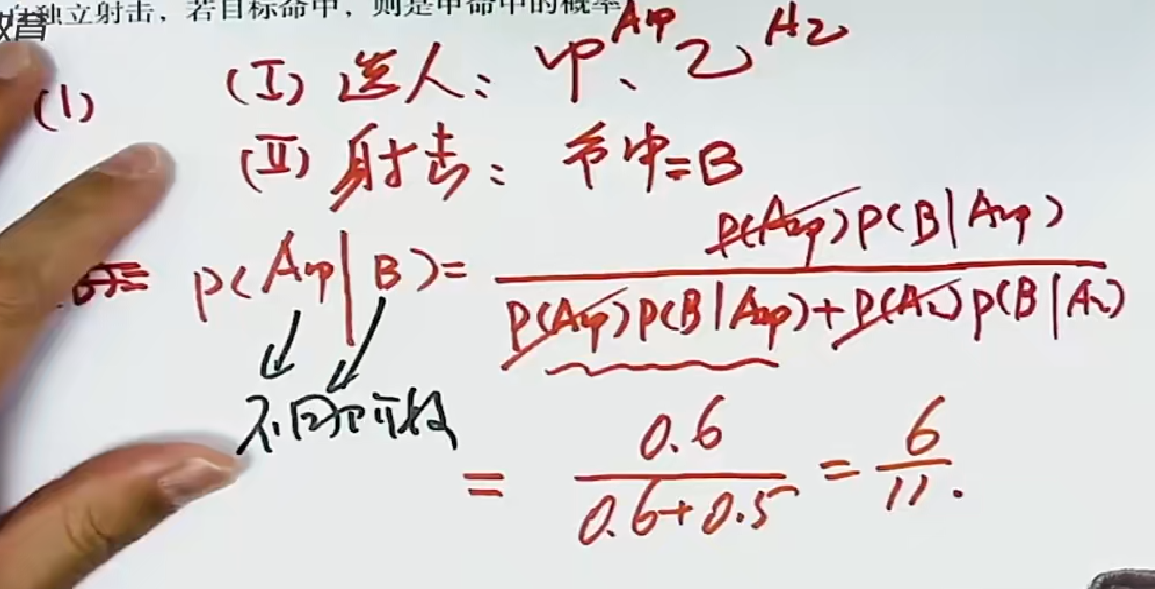 教育
自独立射击，若目标命中，则是甲命中的概率
(1)
(I) 选人：甲A甲、乙A乙
(II) 射击：命中=B
P(A甲|B)= P(A甲)P(B|A甲)
P(A甲)P(B|A甲)+P(A乙)P(B|A乙)
不同阶段
= 0.6/(0.6+0.5) = 6/11.